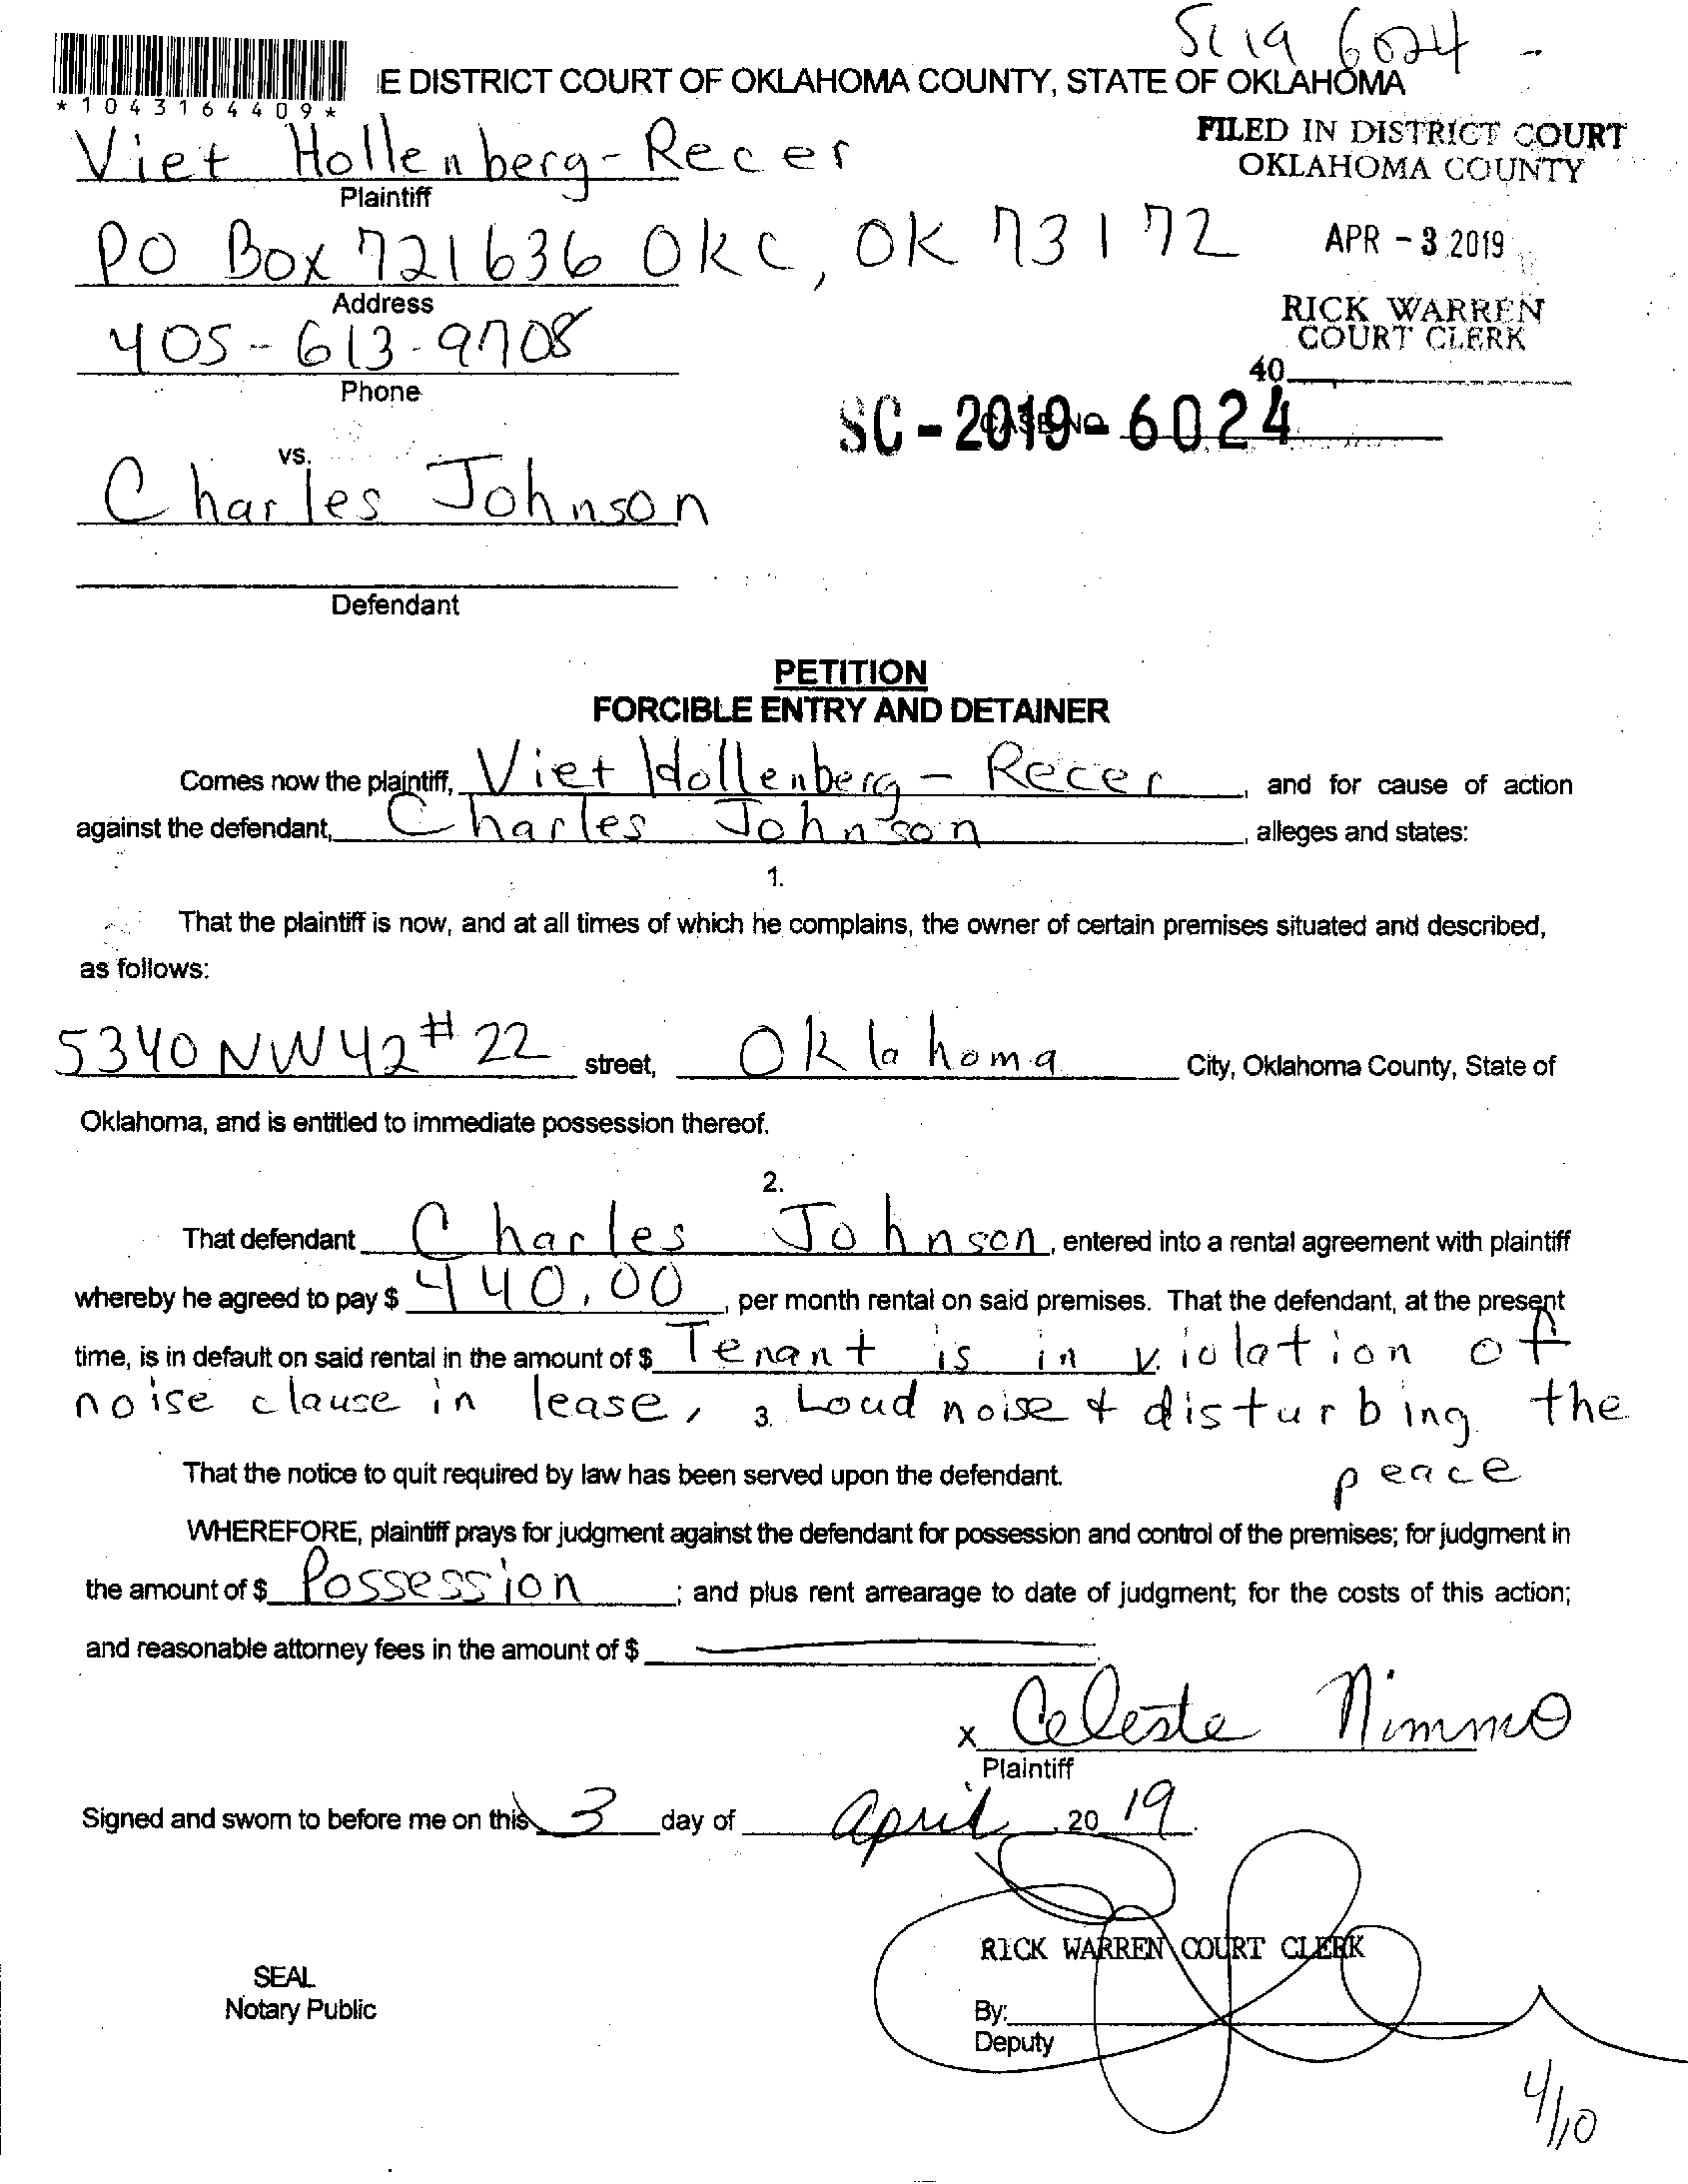 SC 19 6024 -
E DISTRICT COURT OF OKLAHOMA COUNTY, STATE OF OKLAHOMA
*1043164409*
FILED IN DISTRICT COURT
OKLAHOMA COUNTY
Viet Hollenberg-Recer
Plaintiff
PO Box 721636 OKC, OK 73172
APR - 3 2019
Address
RICK WARREN
COURT CLERK
405-613-9708
40
Phone
SC - 2019 - 6024
CASE NO.
vs.
Charles Johnson
Defendant
PETITION
FORCIBLE ENTRY AND DETAINER
Comes now the plaintiff, Viet Hollenberg - Recer, and for cause of action
against the defendant, Charles Johnson, alleges and states:
1.
That the plaintiff is now, and at all times of which he complains, the owner of certain premises situated and described,
as follows:
5340 NW 42 # 22 street, Oklahoma City, Oklahoma County, State of
Oklahoma, and is entitled to immediate possession thereof.
2.
That defendant Charles Johnson, entered into a rental agreement with plaintiff
whereby he agreed to pay $ 440.00, per month rental on said premises. That the defendant, at the present
time, is in default on said rental in the amount of $ Tenant is in violation of
noise clause in lease, 3. Loud noise & disturbing the
peace
That the notice to quit required by law has been served upon the defendant.
WHEREFORE, plaintiff prays for judgment against the defendant for possession and control of the premises; for judgment in
the amount of $ Possession ; and plus rent arrearage to date of judgment; for the costs of this action;
and reasonable attorney fees in the amount of $
x Celeste Nimmo
Plaintiff
Signed and sworn to before me on this 3 day of April, 20 19.
RICK WARREN COURT CLERK
SEAL
Notary Public
By:
Deputy
4/10